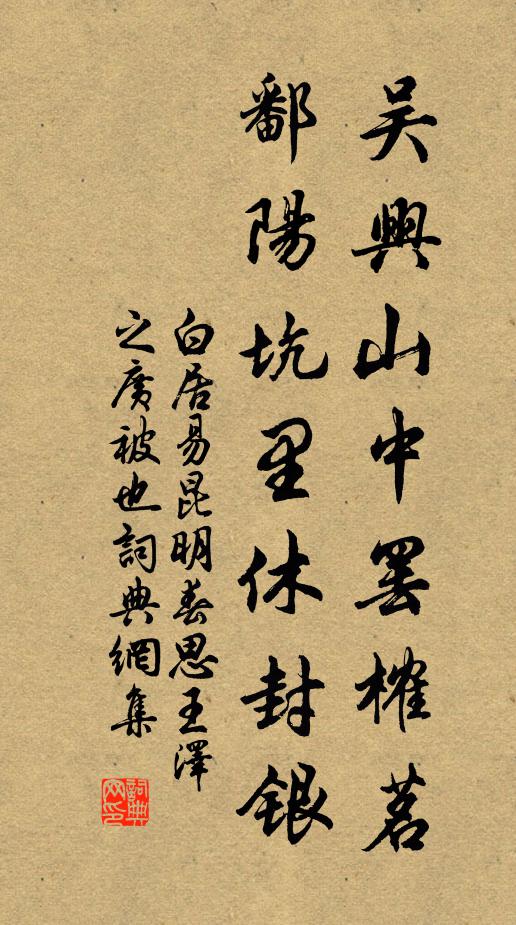 吴興山中罢榷茗
鄱陽坑里休封銀
白居易昆明春思王澤
之廣被也詞典網集
詞典网印